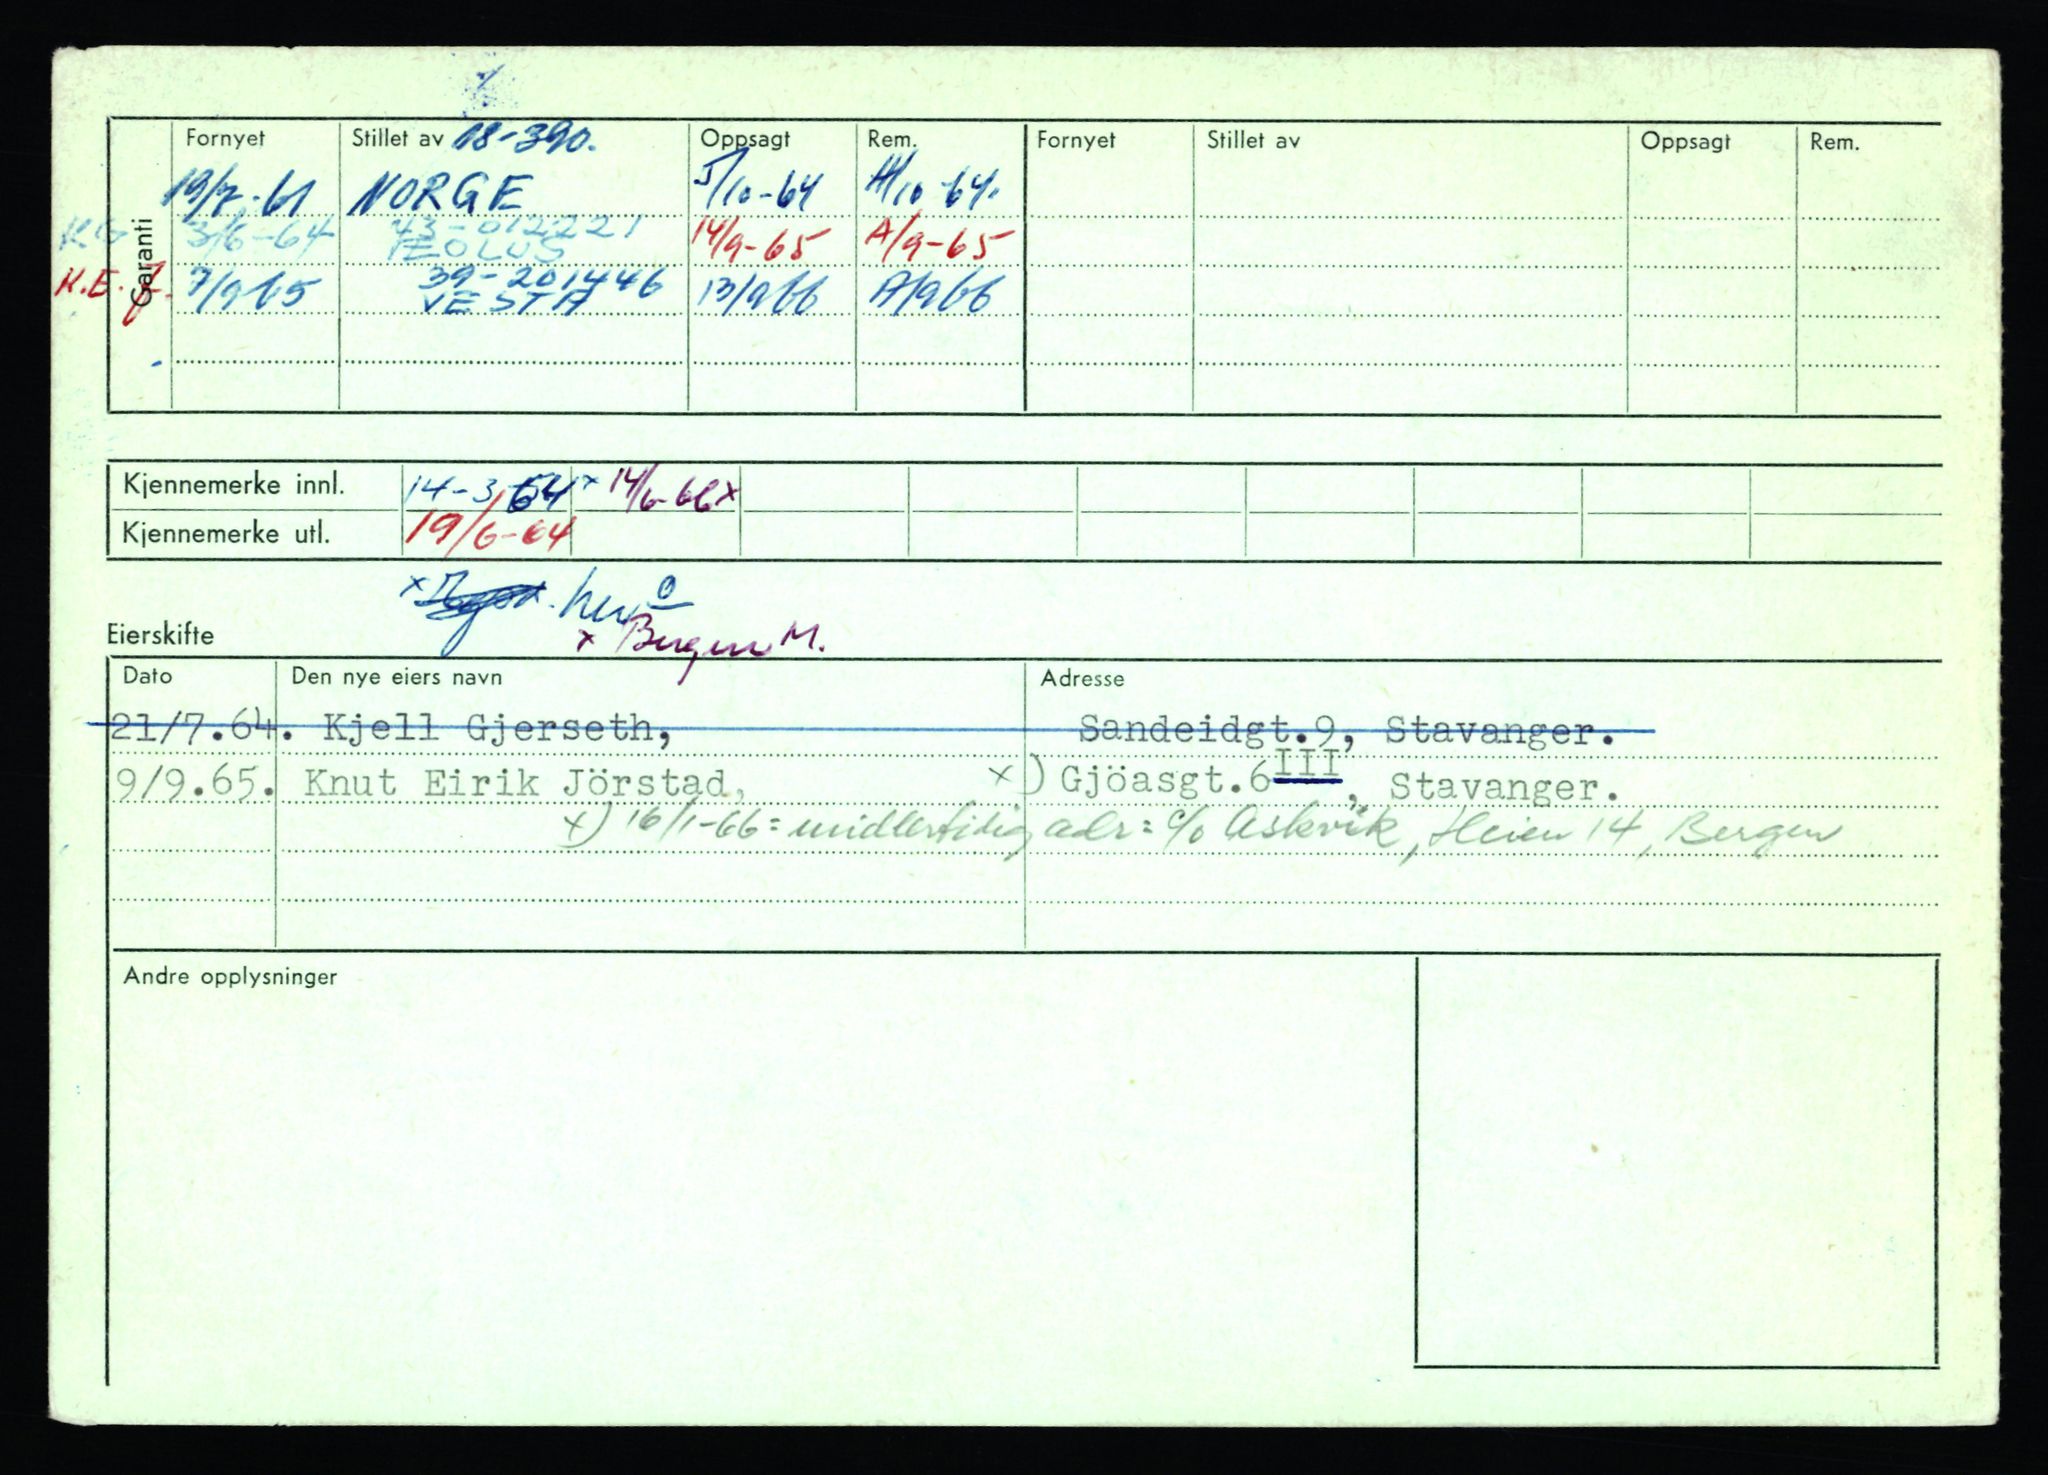 Garanti
Fornyet Stillet av 18-390. Oppsagt Rem. Fornyet Stillet av Oppsagt Rem.
19/7-61 NORGE 5/10-64 A/10-64.
K.G 3/6-64 43-012221 ÆOLUS 14/9-65 A/9-65
K.E.J. 7/9 65 39-201446 VESTA 13/9 66 A/9 66
Kjennemerke innl. 14-3-64 x 14/6-66 x
Kjennemerke utl. 19/6-64
x her
x Bergen M.
Eierskifte
Dato Den nye eiers navn Adresse
21/7.64. Kjell Gjerseth, Sandeidgt.9, Stavanger.
9/9.65. Knut Eirik Jörstad, x) Gjöasgt.6 III, Stavanger.
x) 16/1-66 = midlertidig adr: c/o Askvik, Heien 14, Bergen
Andre opplysninger